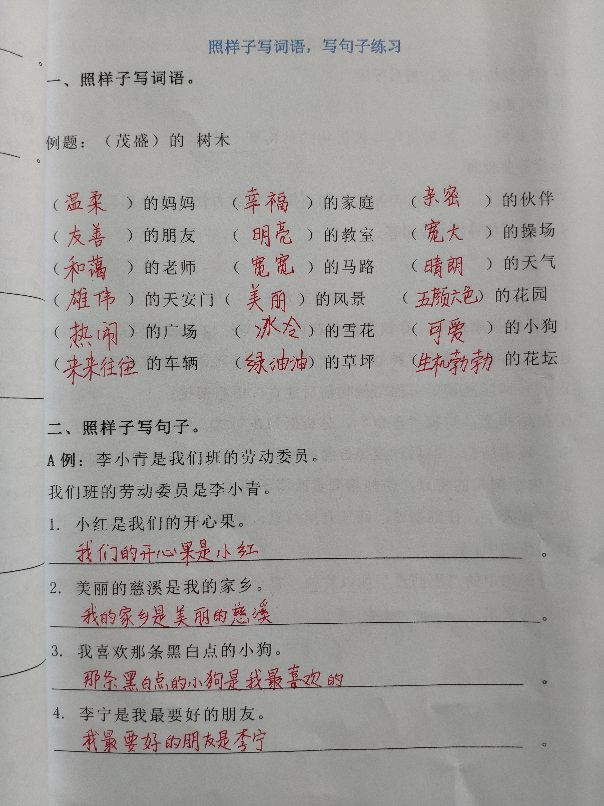 照样子写词语，写句子练习
一、照样子写词语。
例题：（茂盛）的 树木
（温柔）的妈妈 （幸福）的家庭 （亲密）的伙伴
（友善）的朋友 （明亮）的教室 （宽大）的操场
（和蔼）的老师 （宽宽）的马路 （晴朗）的天气
（雄伟）的天安门（美丽）的风景 （五颜六色）的花园
（热闹）的广场 （冰冷）的雪花 （可爱）的小狗
（来来往往）的车辆 （绿油油）的草坪 （生机勃勃）的花坛
二、照样子写句子。
A 例：李小青是我们班的劳动委员。
我们班的劳动委员是李小青。
1. 小红是我们的开心果。
我们的开心果是小红。
2. 美丽的慈溪是我的家乡。
我的家乡是美丽的慈溪。
3. 我喜欢那条黑白点的小狗。
那条黑白点的小狗是我最喜欢的。
4. 李宁是我最要好的朋友。
我最要好的朋友是李宁。